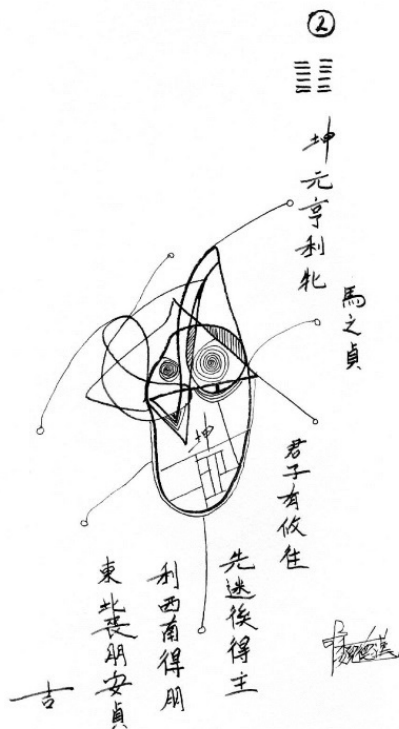 ②
坤元亨利牝
馬之貞
君子有攸往
先迷後得主
利西南得朋
東北喪朋安貞
吉
坤